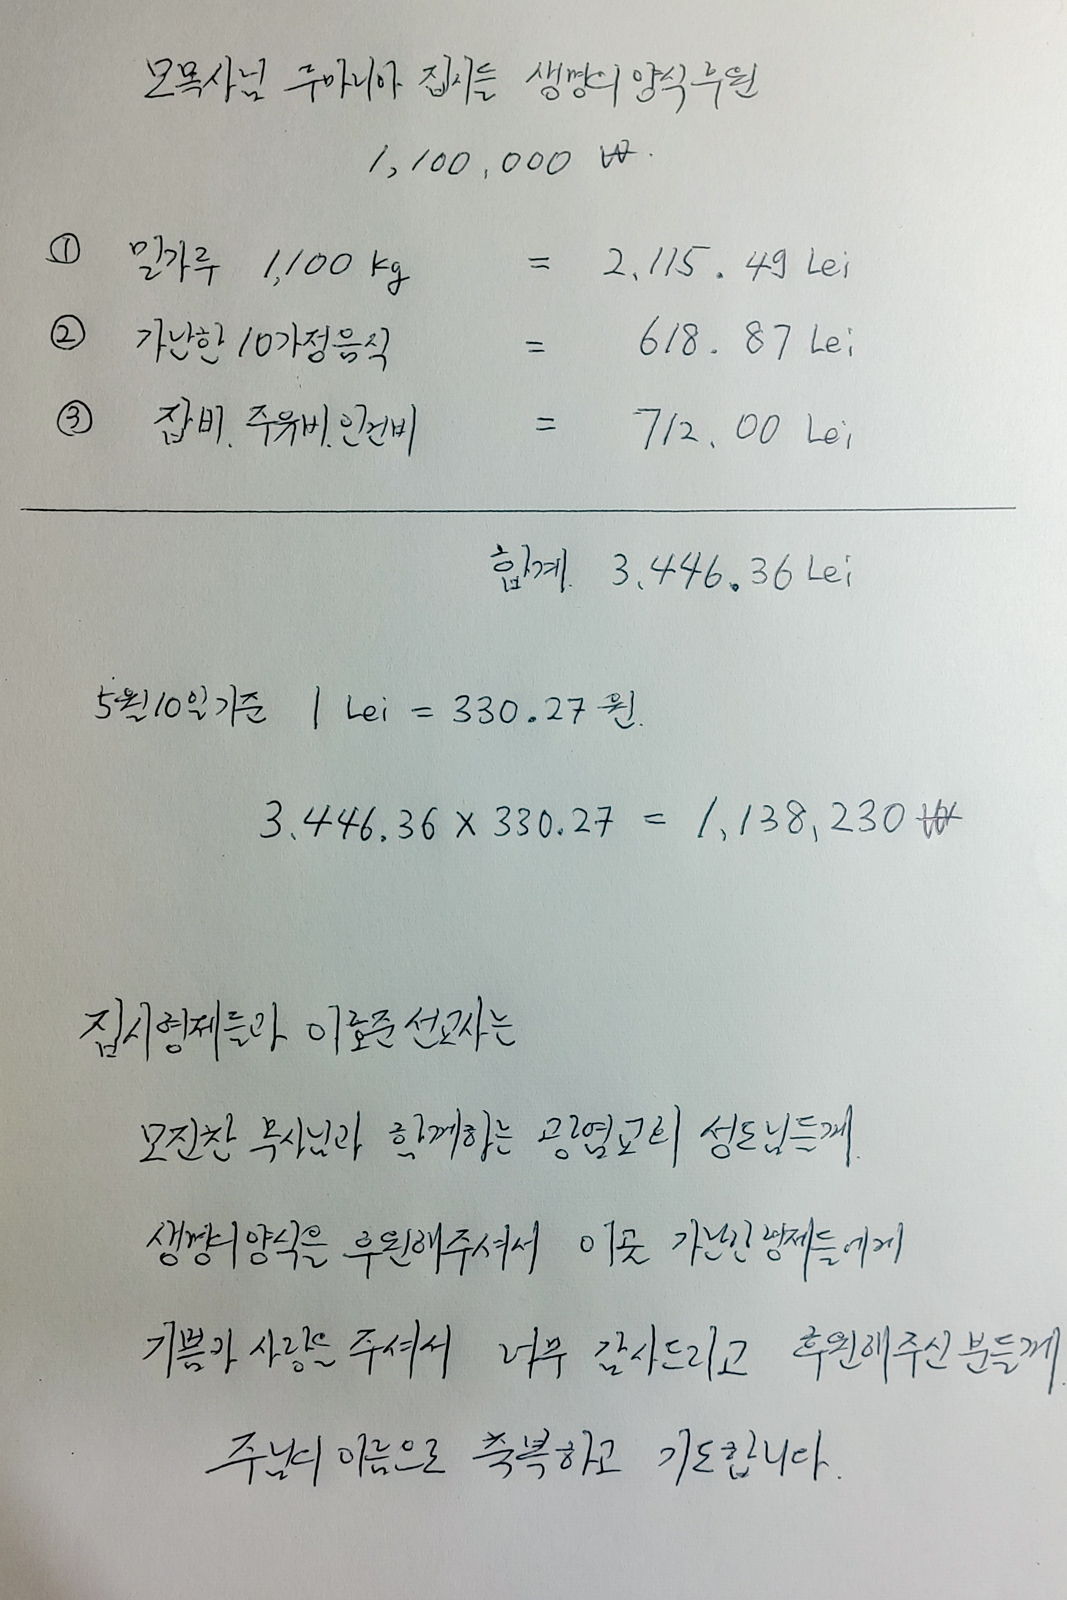 모목사님 루마니아 집시들 생명의 양식 후원
1,100,000 ₩.
① 밀가루 1,100 kg = 2,115.49 Lei
② 가난한 10가정 음식 = 618.87 Lei
③ 잡비. 주유비. 인건비 = 712.00 Lei
합계. 3,446.36 Lei
5월10일 기준 1 Lei = 330.27 원.
3,446.36 x 330.27 = 1,138,230 ₩
집시형제들과 이호준 선교사는
모진찬 목사님과 함께하는 공염교회 성도님들께.
생명의 양식을 후원해주셔서 이곳 가난한 형제들에게
기쁨과 사랑을 주셔서 너무 감사드리고 후원해주신 분들께.
주님의 이름으로 축복하고 기도합니다.